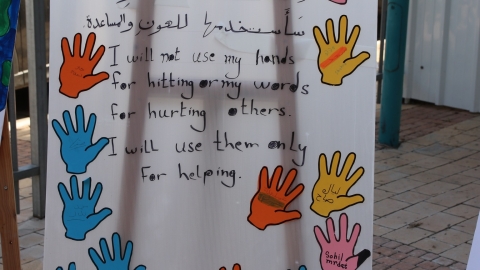 سأستخدمها للعون والمساعدة.
I will not use my hands
for hitting or my words
for hurting others.
I will use them only
for helping.
Sohil